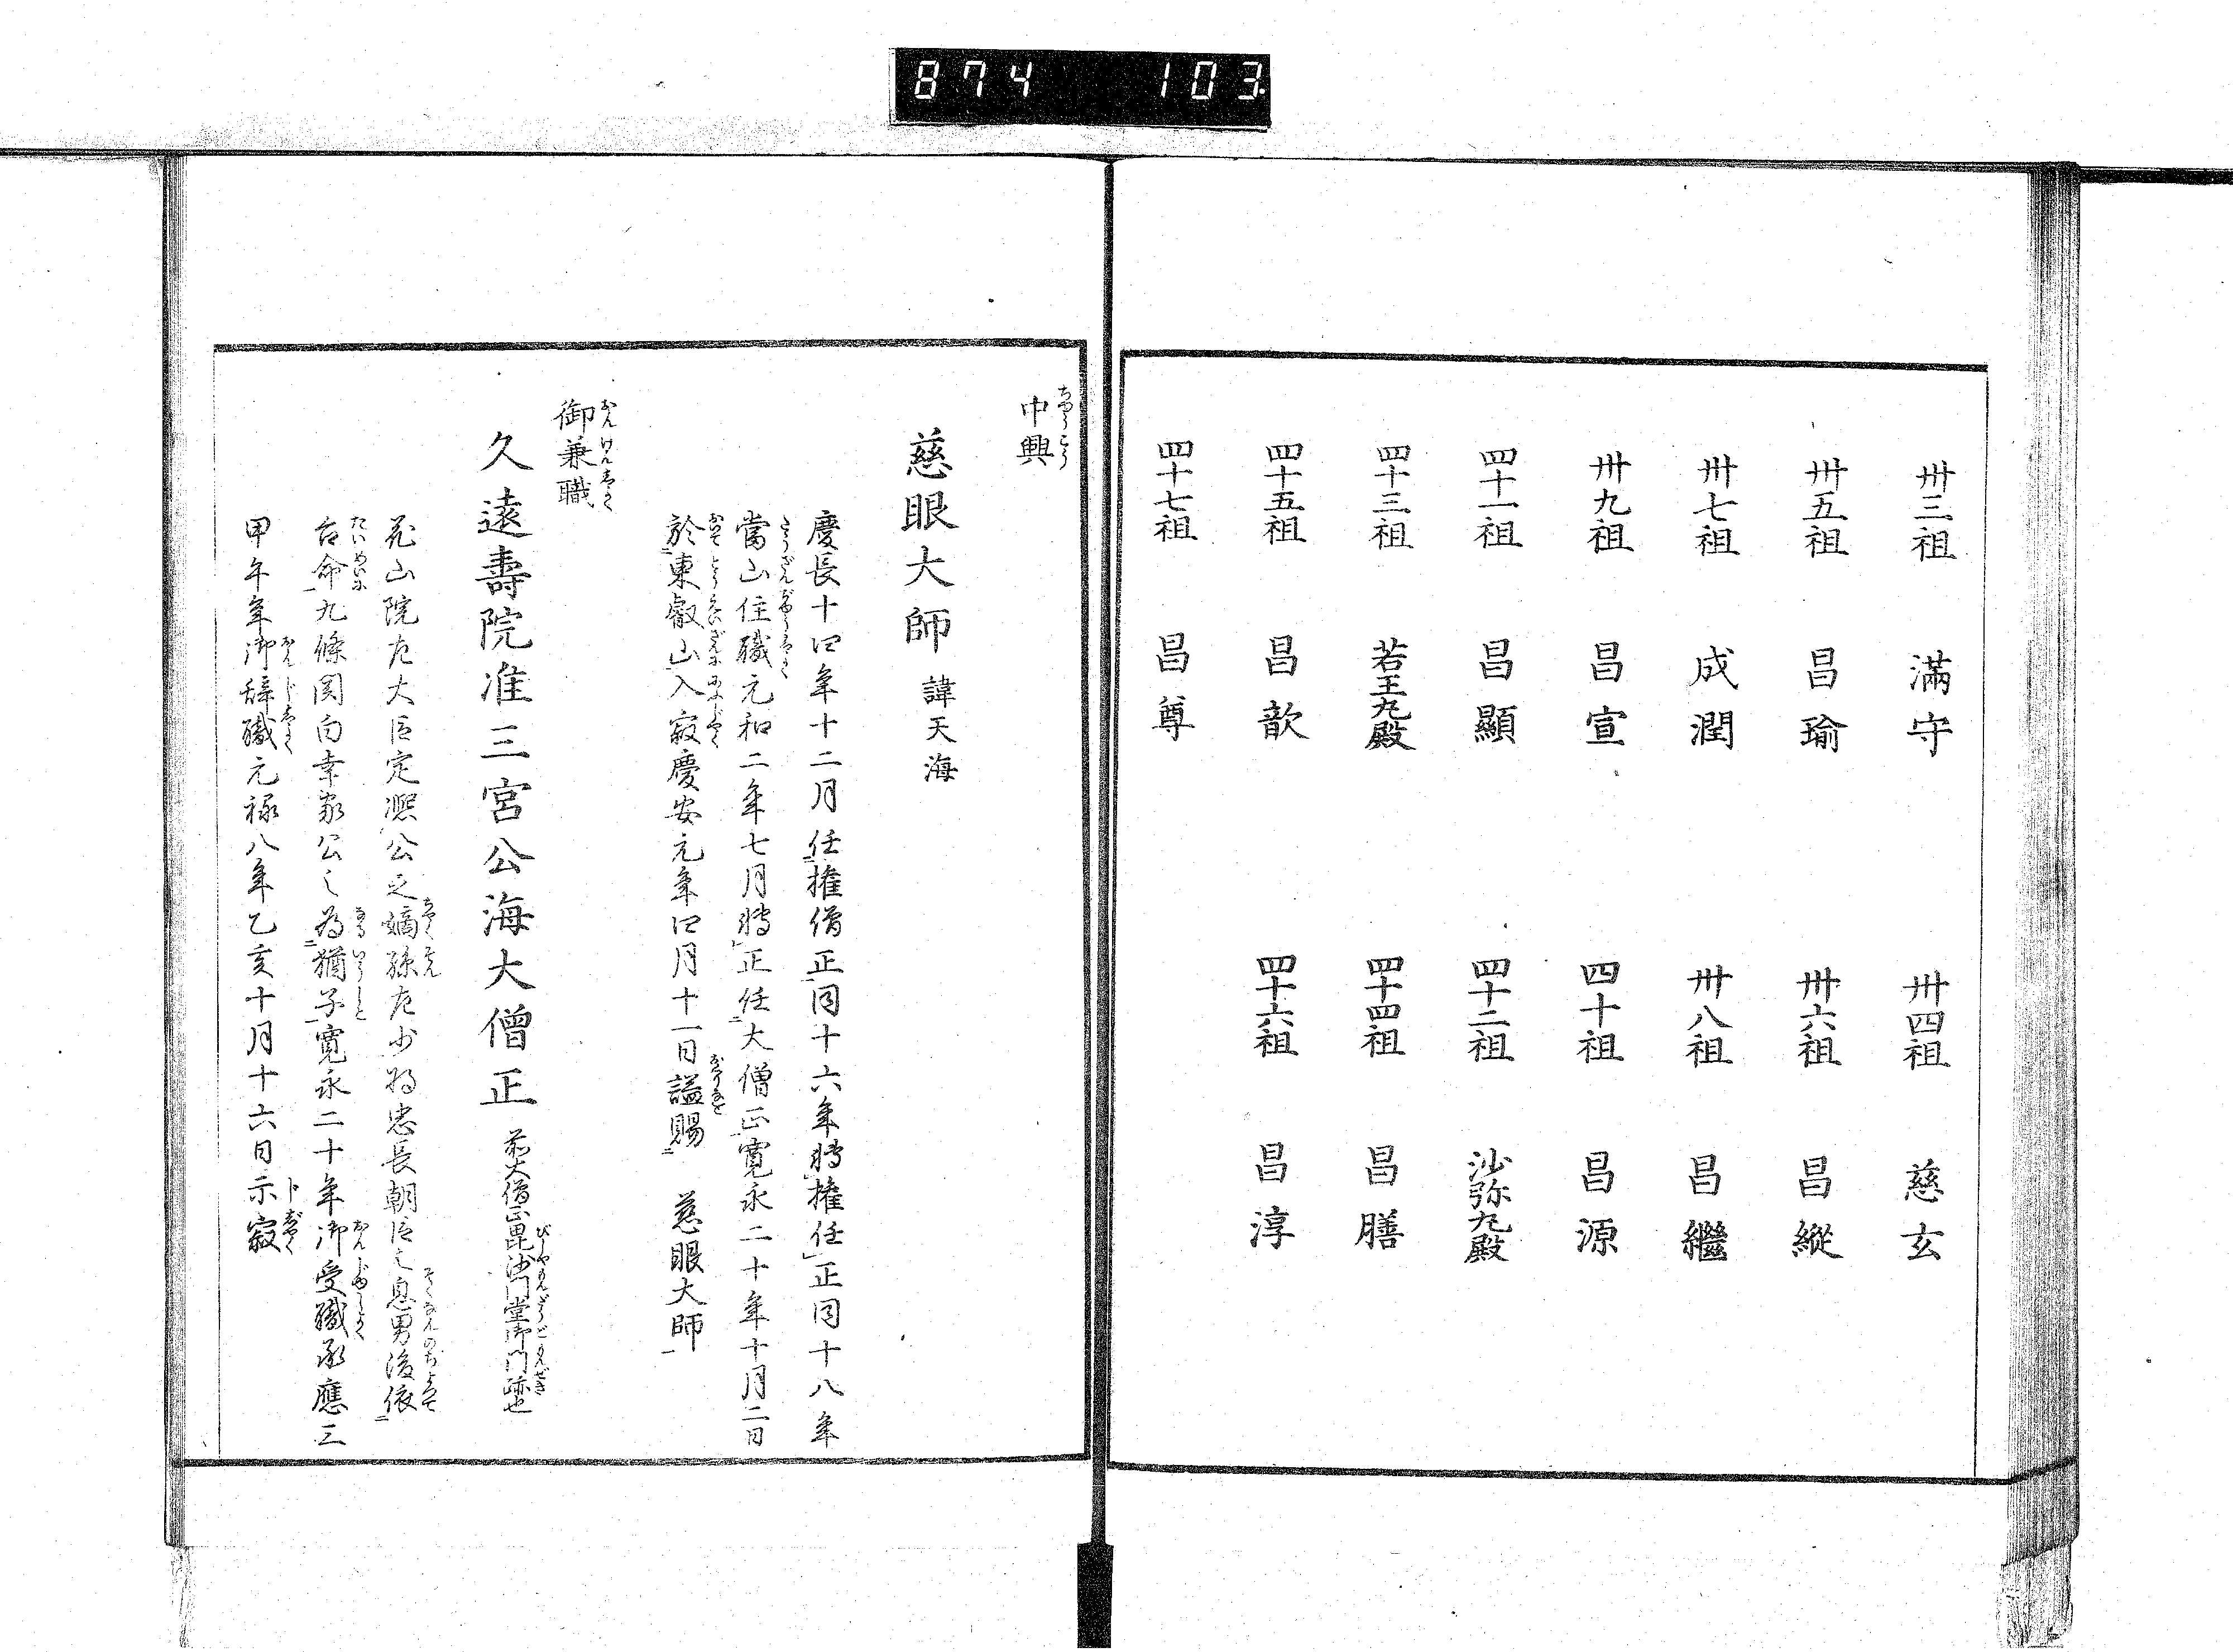 874 103
卅三祖 滿守 卅四祖 慈玄
卅五祖 昌瑜 卅六祖 昌縱
卅七祖 成潤 卅八祖 昌繼
卅九祖 昌宣 四十祖 昌源
四十一祖 昌顯 四十二祖 沙弥丸殿
四十三祖 若王丸殿 四十四祖 昌膳
四十五祖 昌歆 四十六祖 昌淳
四十七祖 昌尊
中興
慈眼大師 諱天海
慶長十四年十二月任権僧正同十六年轉権任正同十八年
當山住職元和二年七月轉正任大僧正寛永二十年十月二日
於東叡山入寂慶安元年四月十一日謚賜 慈眼大師
御兼職
久遠壽院准三宮公海大僧正 前大僧正毘沙門堂御門跡也
花山院左大臣定熈公之嫡孫左少将忠長朝臣之息男後依
台命九條関白幸家公之為猶子寛永二十年御受職承應三
甲午年御辞職元禄八年乙亥十月十六日示寂